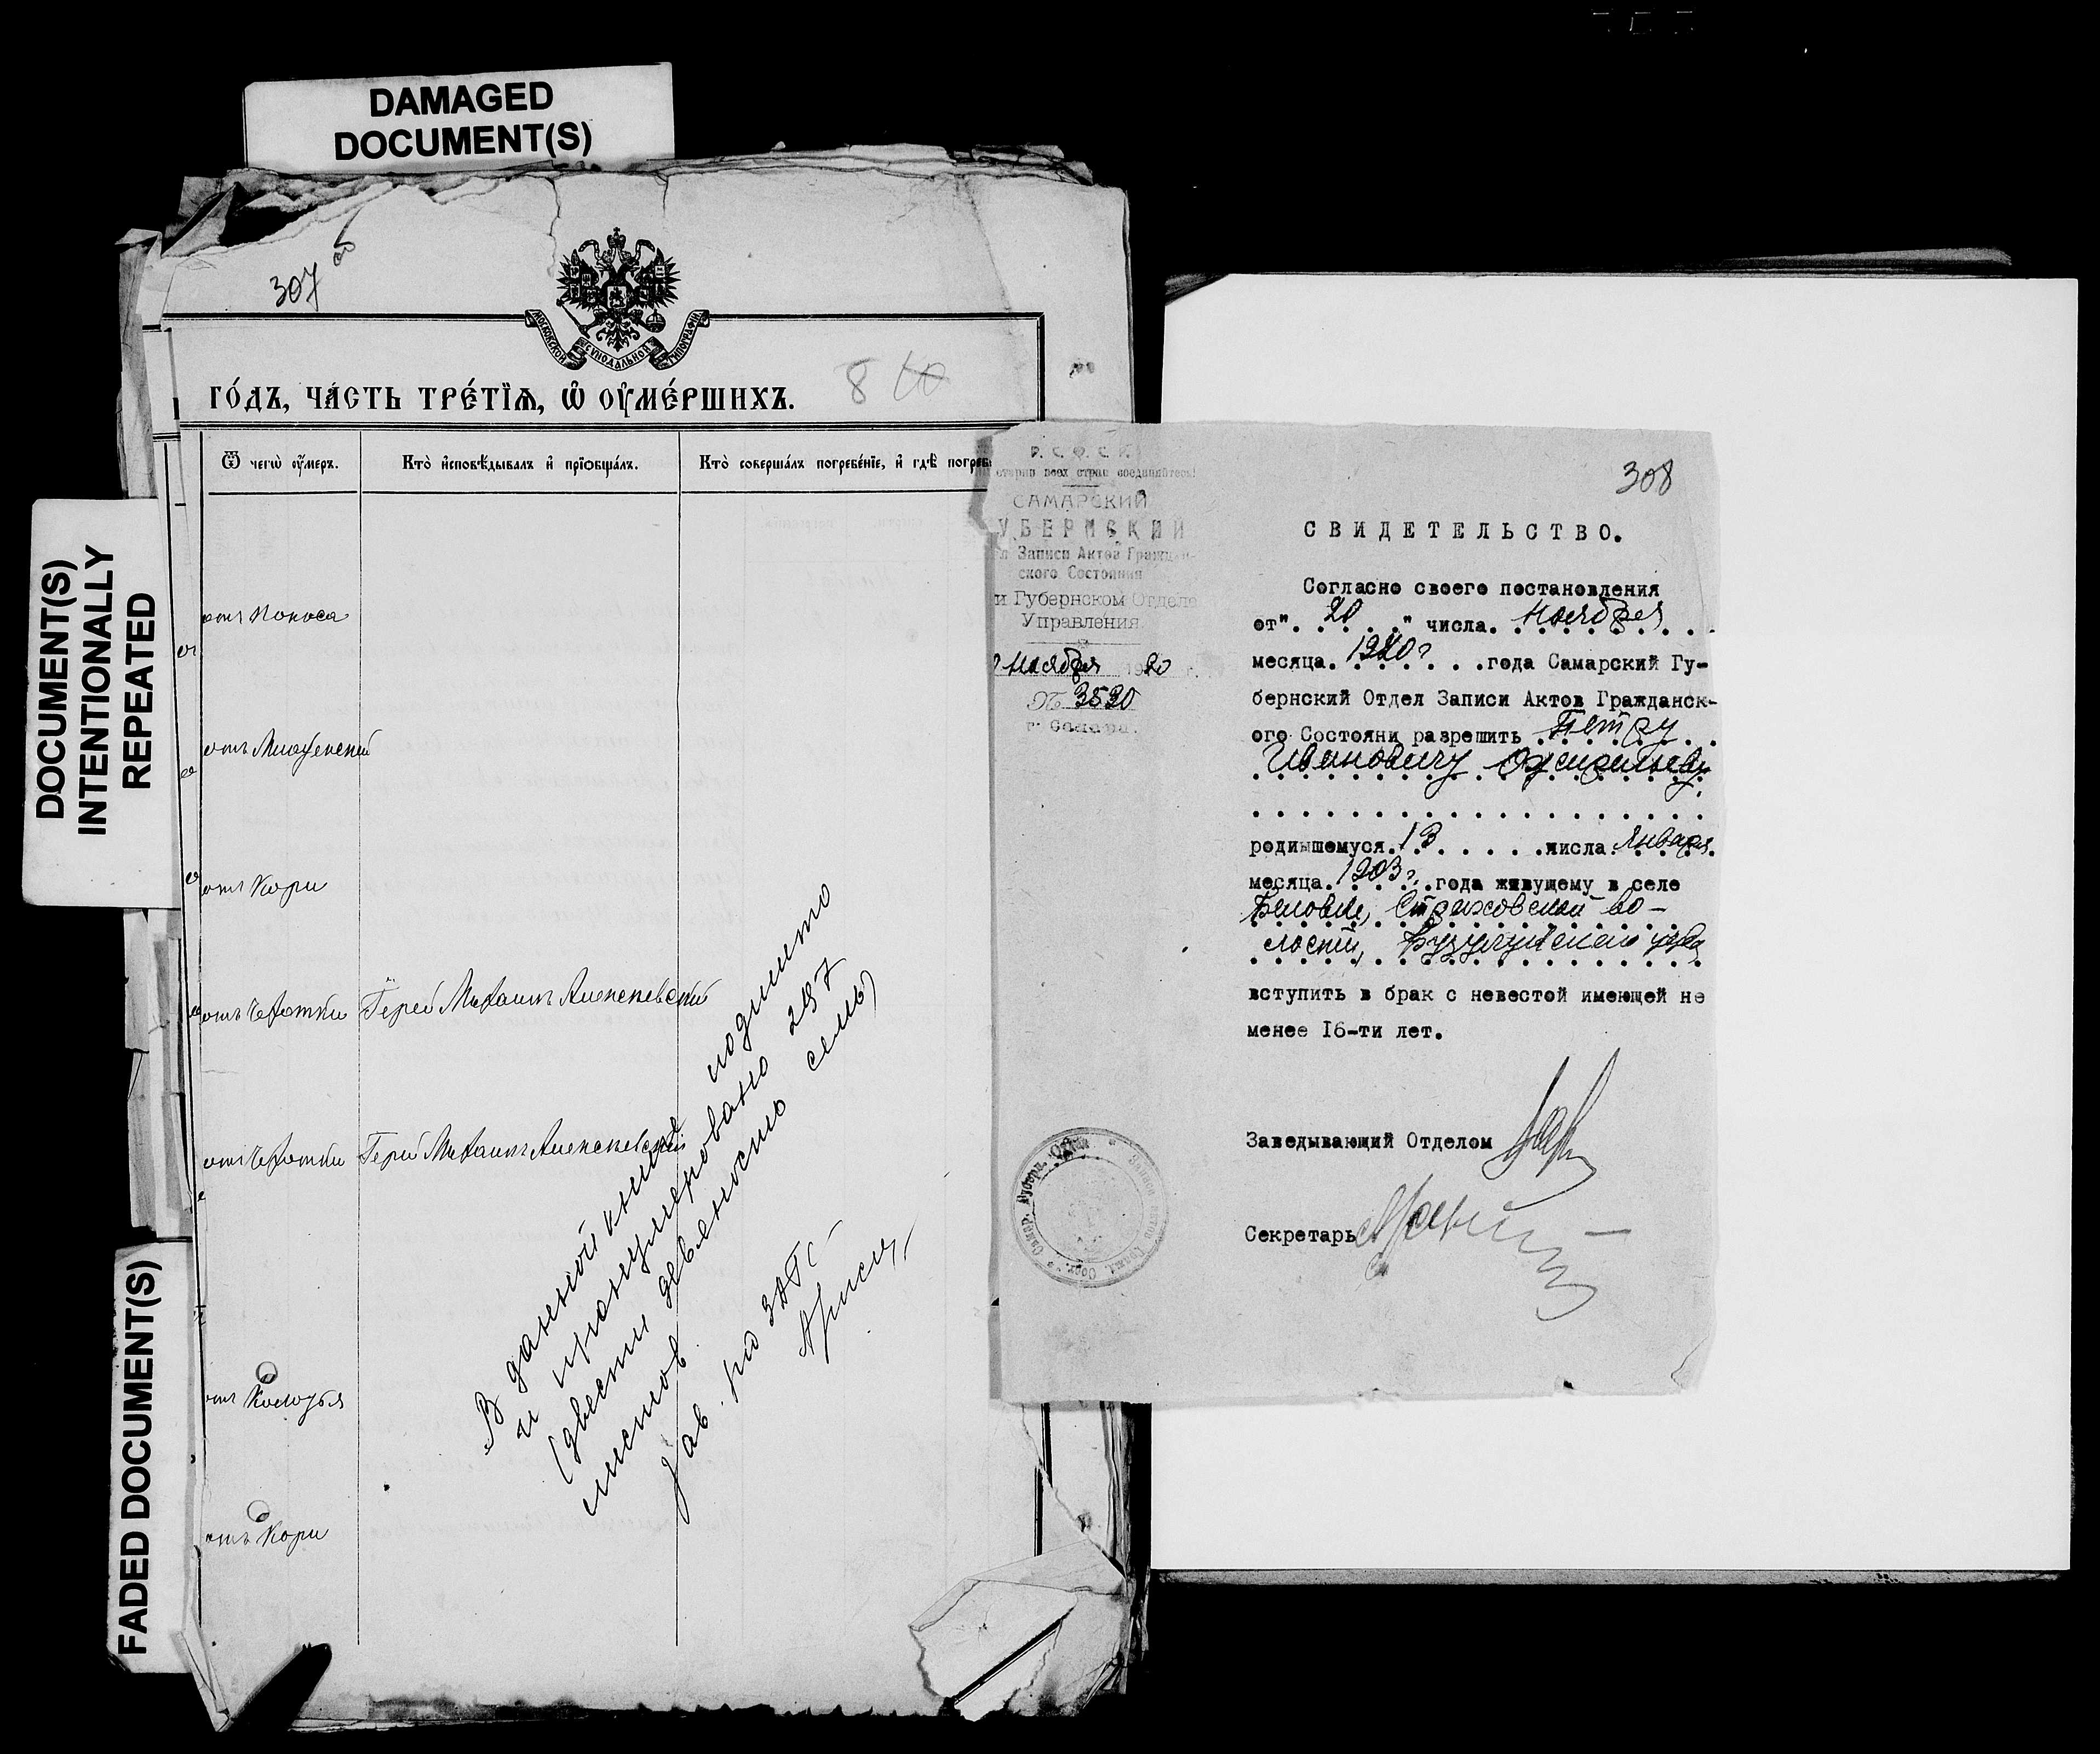 DAMAGED
DOCUMENT(S)
DOCUMENT(S)
INTENTIONALLY
REPEATED
FADED DOCUMENT(S)
307 об
МОСКОВСКОЙ СѴНОДАЛЬНОЙ ТИПОГРАФІИ
ГО́ДЪ, ЧА́СТЬ ТРЕ́ТЇѦ, Ѽ ОУ҆МЕ́РШИХЪ.
8
Ѿ чегѡ̀ оу҆́меръ.
Кто̀ и҆сповѣ́дывалъ и҆ прїѡбща́лъ.
Кто̀ соверша́лъ погребе́нїе, и҆ гдѣ̀ погреб
отъ Поноса
отъ Кори
отъ Чахотки Іерей Михаилъ Алексеевский
отъ Чахотки Іерей Михаилъ Алексеевский
отъ Колотья
отъ Кори
В данной книге подшито
и пронумеровано 297
(двести девяносто семь)
листов
Зав. рио ЗАГС
Р. С. Ф. С. Р.
етарии всех стран соединяйтесь!
САМАРСКИЙ
УБЕРНСКИЙ
л Записи Актов Граждан-
ского Состояния
и Губернском Отделе
Управления
Ноября 1920 г.
№ 3530
г. Самара.
308
СВИДЕТЕЛЬСТВО.
Согласно своего постановления
от " 20 " числа Ноября
месяца 1920 г года Самарский Гу-
бернский Отдел Записи Актов Гражданск-
ого Состояни разрешить Петру
Ивановичу
родившемуся 13 числа Января
месяца 1903 г. года живущему в селе
Беловке, Страховской во-
лости, Бузулукского уезда
вступить в брак с невестой имеющей не
менее 16-ти лет.
Заведывающий Отделом
Секретарь